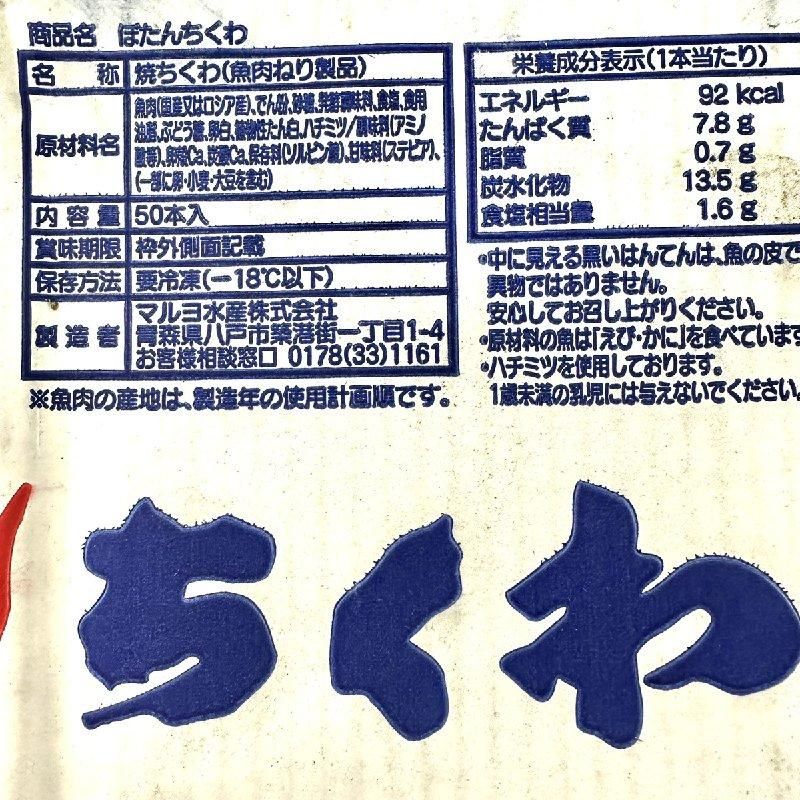 商品名 ぼたんちくわ
名称 焼ちくわ(魚肉ねり製品)
原材料名 魚肉(国産又はロシア産)、でん粉、砂糖、発酵調味料、食塩、食用
油脂、ぶどう糖、卵白、植物性たん白、ハチミツ/調味料(アミノ
酸等)、卵殻Ca、炭酸Ca、保存料(ソルビン酸)、甘味料(ステビア)、
(一部に卵・小麦・大豆を含む)
内容量 50本入
賞味期限 枠外側面記載
保存方法 要冷凍(-18℃以下)
製造者 マルヨ水産株式会社
青森県八戸市築港街一丁目1-4
お客様相談窓口 0178(33)1161
※魚肉の産地は、製造年の使用計画順です。
栄養成分表示(1本当たり)
エネルギー 92 kcal
たんぱく質 7.8 g
脂質 0.7 g
炭水化物 13.5 g
食塩相当量 1.6 g
・中に見える黒いはんてんは、魚の皮で
異物ではありません。
安心してお召し上がりください。
・原材料の魚は「えび・かに」を食べています
・ハチミツを使用しております。
1歳未満の乳児には与えないでください。
ちくわ